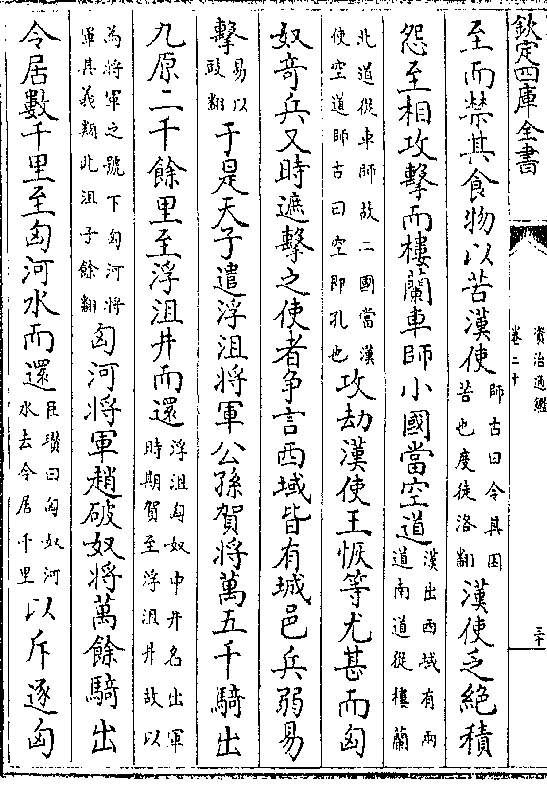 欽定四庫全書
資治通鑑
卷二十
三十
至而禁其食物以苦漢使師古曰令其困苦也度徒洛翻漢使乏絶積
怨至相攻擊而樓蘭車師小國當空道漢出西域有兩道南道從樓蘭
北道從車師故二國當漢使空道師古曰空即孔也攻劫漢使王恢等尤甚而匈
奴竒兵又時遮擊之使者争言西域皆有城邑兵弱易
擊易以豉翻于是天子遣浮沮將軍公孫賀將萬五千騎出
九原二千餘里至浮沮井而還浮沮匈奴中井名出軍時期賀至浮沮井故以
為將軍之號下匈河將軍其義類此沮子餘翻匈河將軍趙破奴將萬餘騎出
令居數千里至匈河水而還臣瓚曰匈奴河水去令居千里以斥逐匈